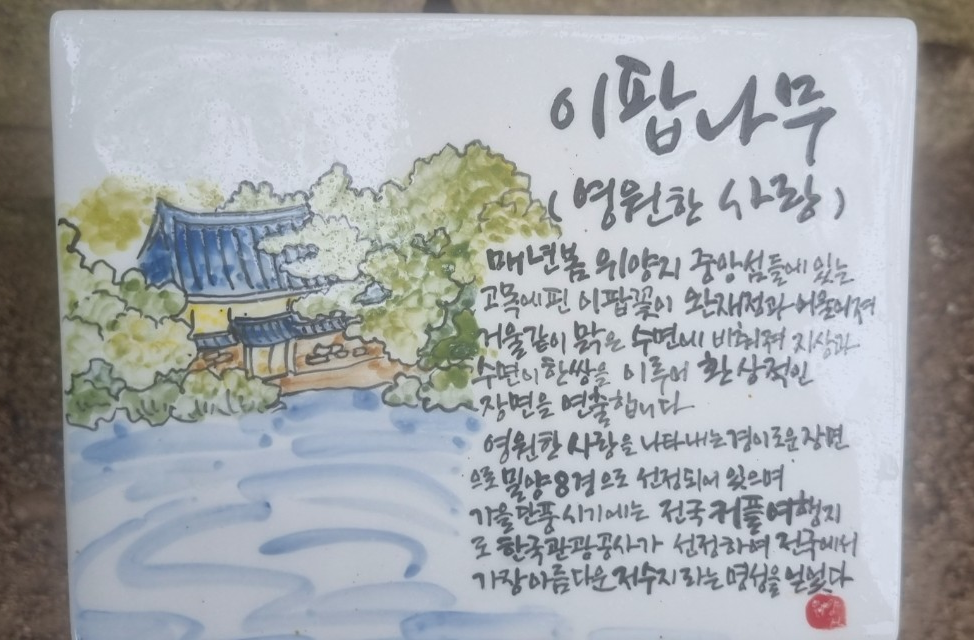 이팝나무
(영원한 사랑)
매년봄 위양지 중앙섬들에 있는
고목에핀 이팝꽃이 완재정과 어울어져
거울같이 맑은 수면에 비춰져 지상과
수면이 한쌍을 이루어 환상적인
장면을 연출합니다
영원한 사랑을 나타내는 경이로운 장면
으로 밀양8경으로 선정되어 있으며
가을단풍시기에는 전국커플여행지
로 한국관광공사가 선정하여 전국에서
가장아름다운 저수지라는 명성을 얻었다